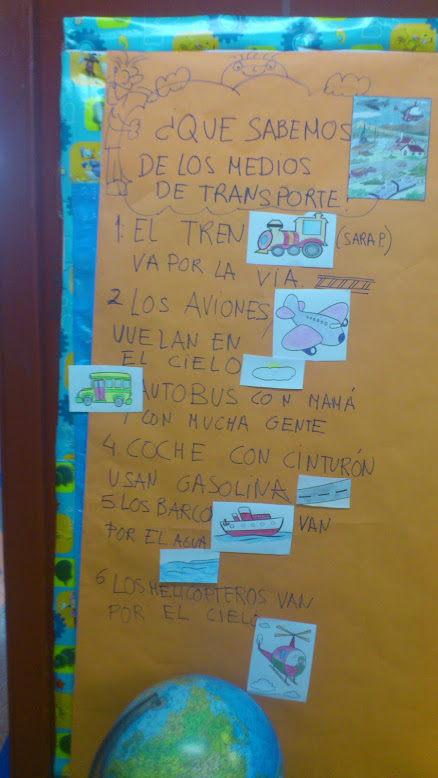 ¿QUE SABEMOS
DE LOS MEDIOS
DE TRANSPORTE?
1. EL TREN (SARA P.)
VA POR LA VÍA.
2 LOS AVIONES
VUELAN EN
EL CIELO
AUTOBUS CON MAMÁ
Y CON MUCHA GENTE
4. COCHE CON CINTURÓN
USAN GASOLINA
5 LOS BARCO VAN
POR EL AGUA
6 LOS HELICOPTEROS VAN
POR EL CIELO